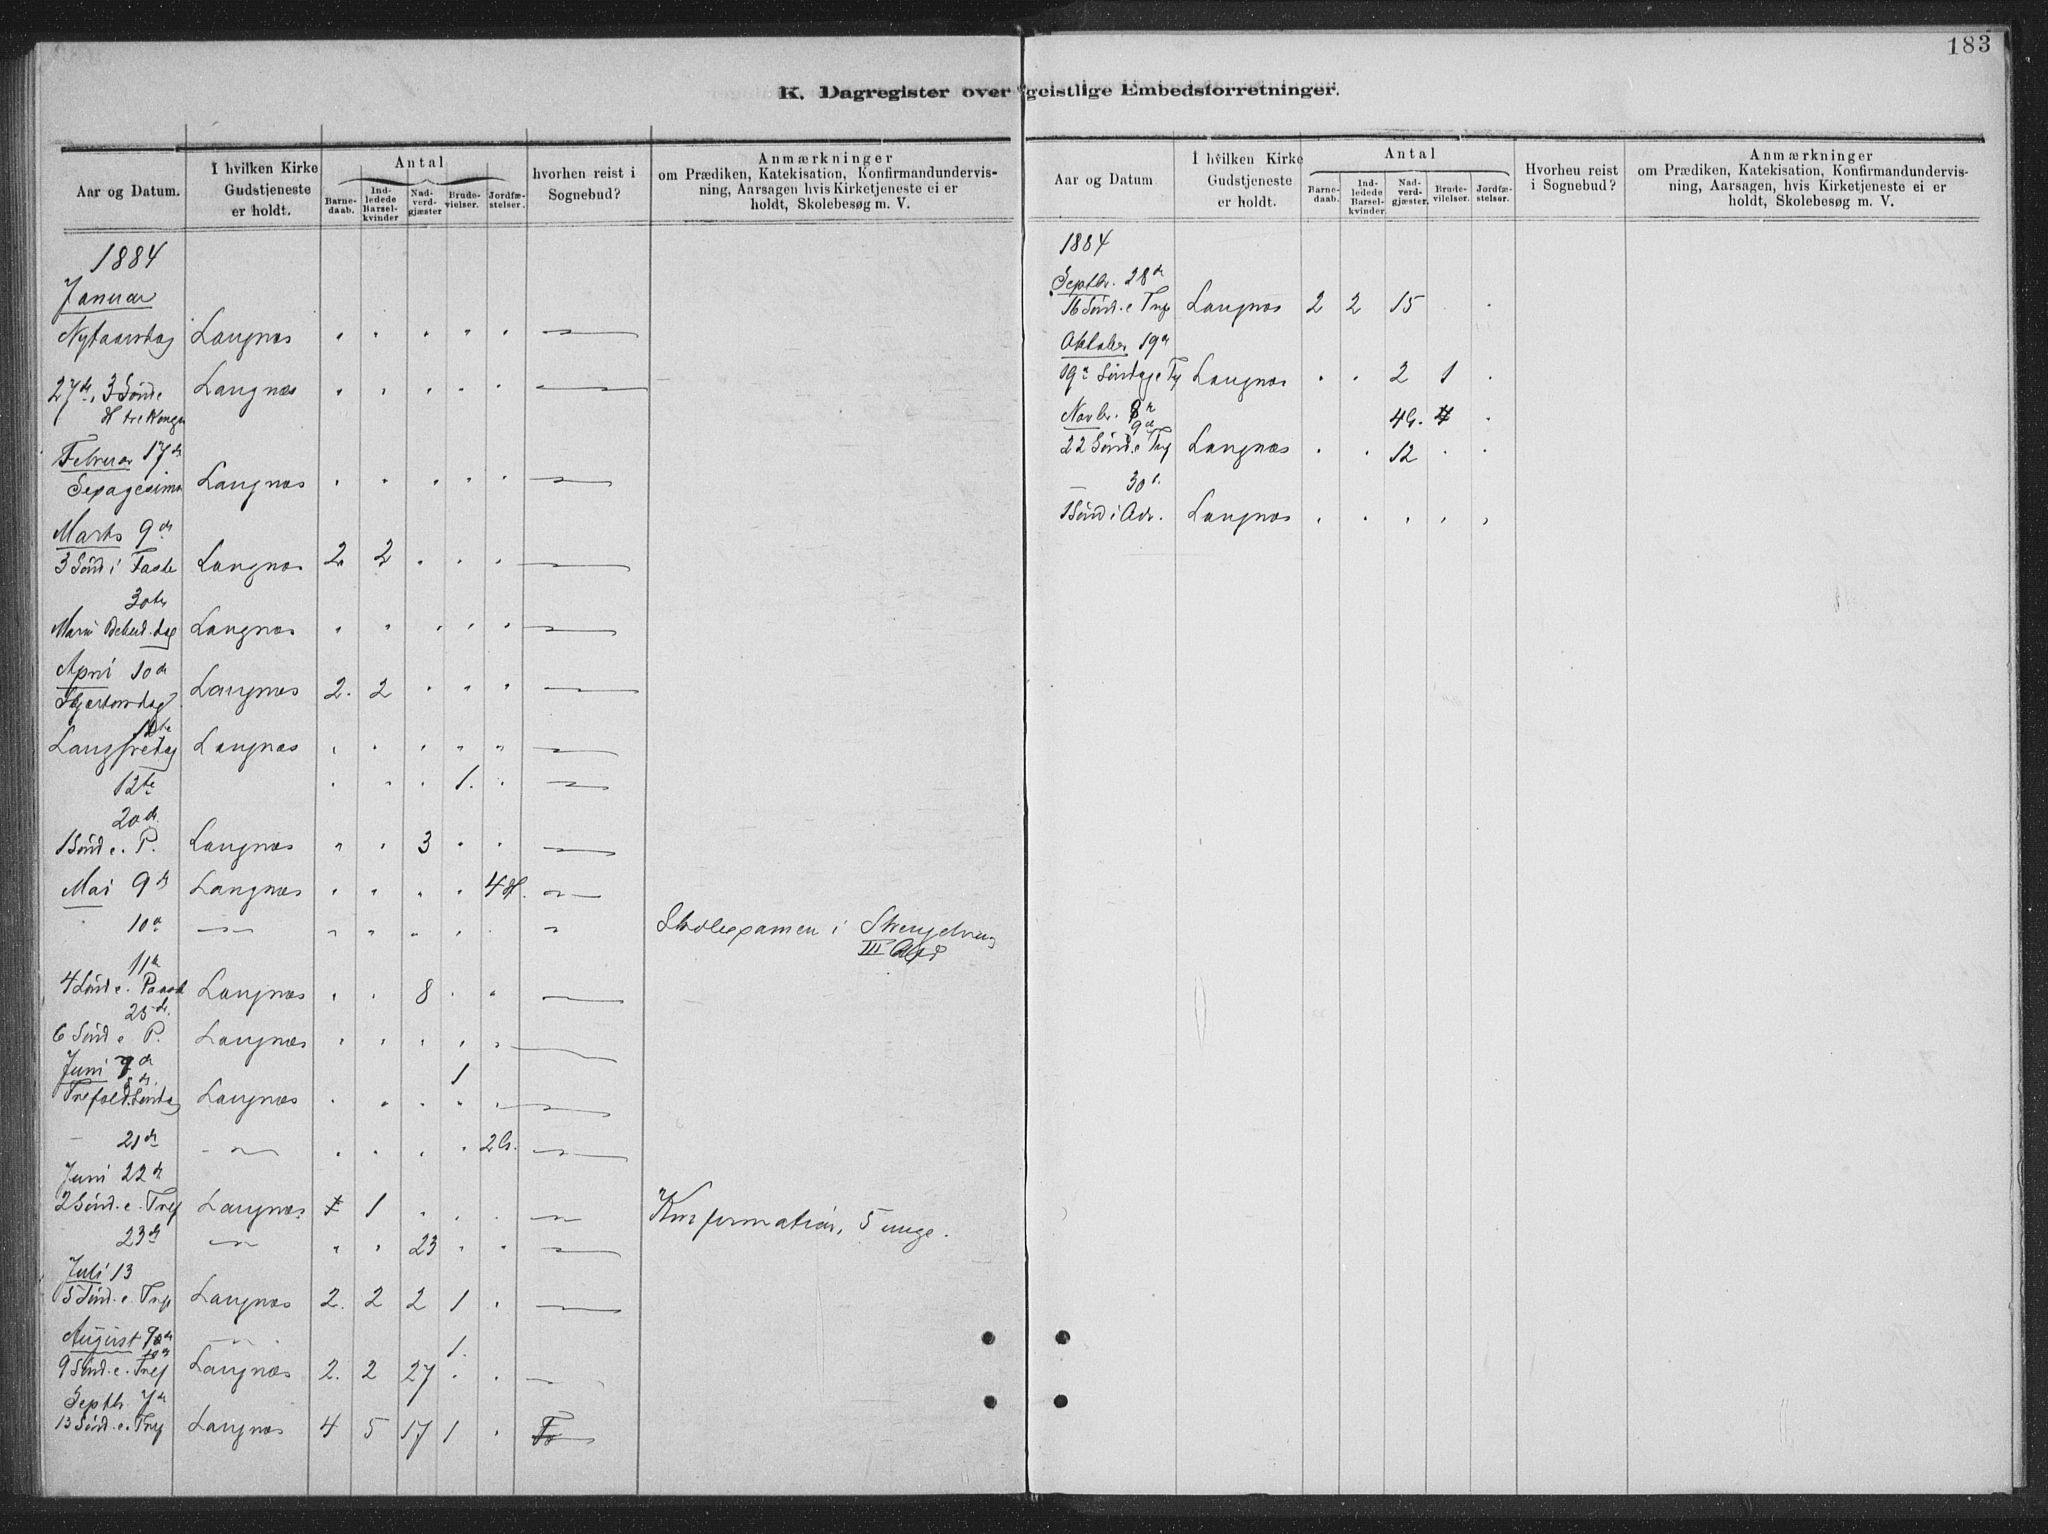 183
K. Dagregister over geistlige Embedsforretninger.
Aar og Datum.
I hvilken Kirke Gudstjeneste er holdt.
Antal
Barne-daab.
Ind-ledede Barsel-kvinder
Nad-verd-gjæster
Brude-vielser.
Jordfæ-stelser.
hvorhen reist i Sognebud?
Anmærkninger
om Prædiken, Katekisation, Konfirmandundervis-
ning, Aarsagen hvis Kirketjeneste ei er
holdt, Skolebesøg m. V.
1884
Januar
Nytaarsdag Langnæs " " " " "
27de, 3 Sønd e Langnæs " " " " "
H tre Konge
Februar 17de
Sexagesima Langnæs " " " " "
Marts 9de
3 Sønd i Faste Langnæs 2 2 " " "
30te
Mariæ Bebud.dag Langnæs " " " " "
April 10de
Skjertorsdag Langnæs 2. 2 " " "
11te
Langfredag Langnæs " " " " "
12te " " " 1. "
20de
1 Sønd e. P. Langnæs " " 3 " "
Mai 9de Langnæs " " " " 4 H.
10de — " — " " " " Skoleexamen i Strengelvaag
III Afd
11te
4 Sønd e. Paask Langnæs " " 8 " "
25de.
6 Sønd e P. Langnæs " " " " "
Juni 7de 1
8de.
Trefold.Søndag Langnæs " " " "
— 21de — " — " " " " 2 G.
Juni 22de
2 Sønd. e. Tref Langnæs 1 1 " " " Konfirmation, 5 unge.
23de — " — " " 23 " "
Juli 13
5 Sønd. e. Tref Langnæs 2. 2 2 1 "
August 9de — " — 1.
10de
9 Sønd. e. Tref Langnæs 2. 2 27 " "
Septbr. 7de
13 Sønd. e. Tref Langnæs 4 5 17 1 "
Aar og Datum
I hvilken Kirke Gudstjeneste er holdt.
Antal
Barne-daab.
Ind-ledede Barsel-kvinder
Nad-verd-gjæster.
Brude-vielser.
Jordfæ-stelser.
Hvorheu reist i Sognebud?
Anmærkninger
om Prædiken, Katekisation, Konfirmandundervis-
ning, Aarsagen, hvis Kirketjeneste ei er
holdt, Skolebesøg m. V.
1884
Septbr. 28de
16 Sønd. e Tref Langnæs 2 2 15 " "
Oktober 19de
19de Søndag e Tr Langnæs " " 2 1 "
Novbr. 8de 4 G.
9de
22 Sønd. e Tref Langnæs " " 12 " "
— 30te
1 Sønd i Adv. Langnæs " " " " "